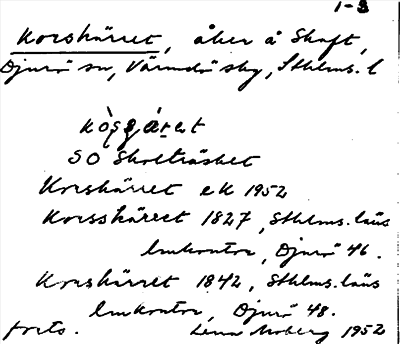 1-3
Korskärret, åker å Skaft,
Djurö sn, Värmdö sky, Sthlms. l
SO Skolträsket
Korskärret ek 1952
Korsskärret 1827, Sthlms. läns
lmkontor, Djurö 46.
Korskärret 1842, Sthlms. läns
lmkontor, Djurö 48.
forts. Lena Moberg 1952